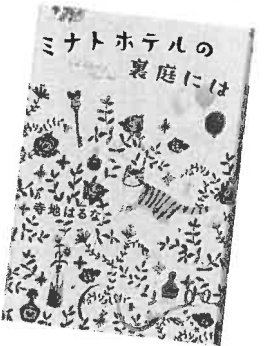 ミナトホテルの
裏庭には
寺地はるな